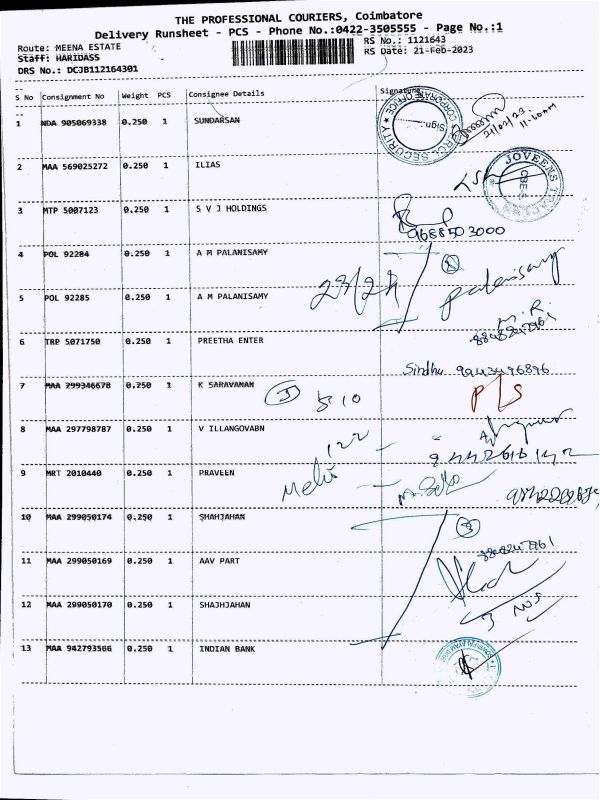 THE PROFESSIONAL COURIERS, Coimbatore
Delivery Runsheet - PCS - Phone No.:0422-3505555 - Page No.:1
Route: MEENA ESTATE RS No.: 1121643
Staff: HARIDASS RS Date: 21-Feb-2023
DRS No.: DCJB112164301
S No Consignment No Weight PCS Consignee Details Signature
1 NDA 905069338 0.250 1 SUNDARSAN
21/02/23
11.60am
2 MAA 569025272 0.250 1 ILIAS
JOVEENS
3 MTP 5007123 0.250 1 S V J HOLDINGS
9688503000
4 POL 92284 0.250 1 A M PALANISAMY
2
23/24 palanisamy
5 POL 92285 0.250 1 A M PALANISAMY
M.R.
6 TRP 5071750 0.250 1 PREETHA ENTER
Sindhu 9943496896
7 MAA 299346678 0.250 1 K SARAVANAN
P/S
8 MAA 297798787 0.250 1 V ILLANGOVABN
122
9 MRT 2010440 0.250 1 PRAVEEN
10 MAA 299050174 0.250 1 SHAHJAHAN
3
11 MAA 299050169 0.250 1 AAV PART
12 MAA 299050170 0.250 1 SHAJHJAHAN
13 MAA 942793566 0.250 1 INDIAN BANK